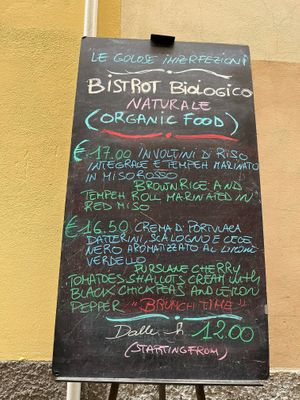 LE GOLOSE IMPERFEZIONI
BISTROT BIOLOGICO
NATURALE
(ORGANIC FOOD)
€ 17.00 INVOLTINI DI RISO
INTEGRALE E TEMPEH MARINATO
IN MISO ROSSO
BROWN RICE AND
TEMPEH ROLL MARINATED IN
RED MISO
€ 16.50 CREMA DI PORTULACA
DATTERINI, SCALOGNO E CECE
NERO AROMATIZZATO AL LIMONE
VERDELLO
PURSLANE CHERRY
TOMATOES SHALLOTS CREAM WITH
BLACK CHICKPEAS AND LEMON
PEPPER "BRUNCH TIME"
Dalle h 12.00
(STARTING FROM)